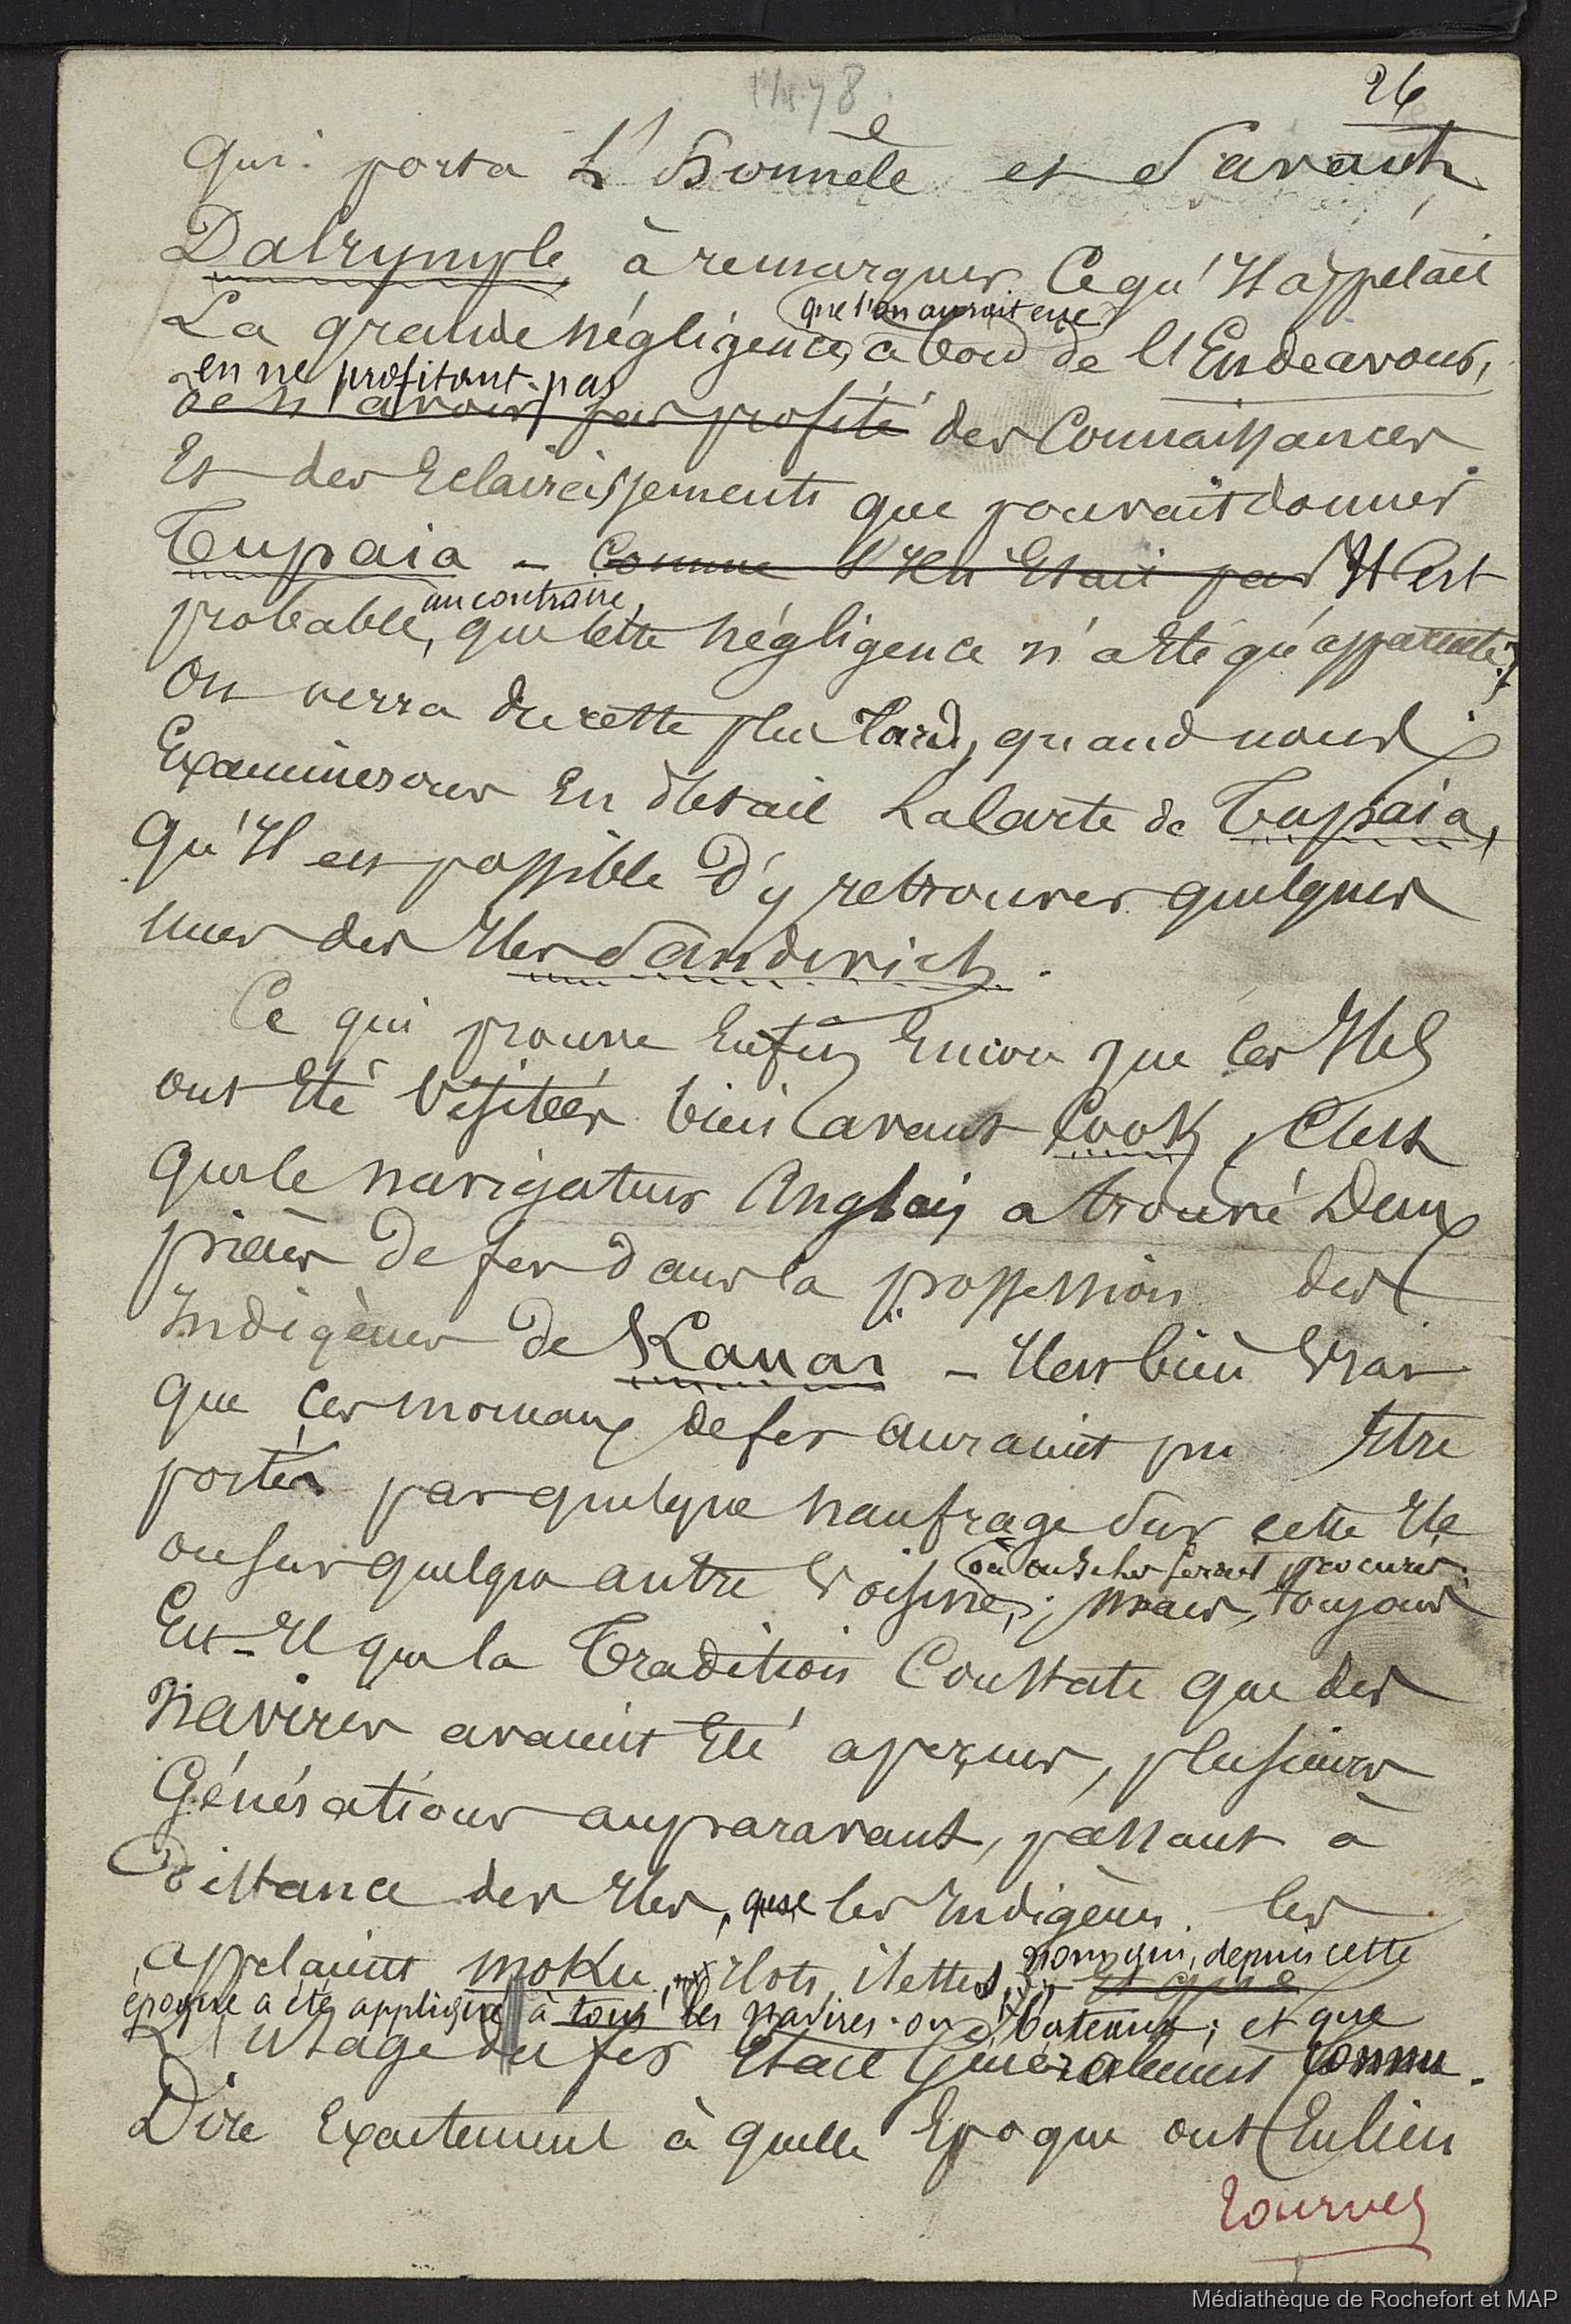 1478
26
qui porta l'honnête et Savant
Dalrymple, à remarquer Ce qu'Il appelait
La grande négligence, que l'on aurait eue à bord de l'Endeavour,
en ne profitant pas
de n'avoir pas profité des Connaissances
Et des Eclaircissements que pouvait donner
Tupaia – Comme s'Il en Etait pas Il Est
probable, au contraire, que cette négligence n'a Eté qu'apparente;
On verra du reste plus tard, quand nous
Examinerons En détail La Carte de Tupaia,
Qu'Il est possible D'y retrouver quelques
unes des Iles Sandwich.
Ce qui prouve Enfin Encore que les Iles
ont Eté Visitées bien avant Cook, C'est
que le navigateur Anglais a trouvé Deux
pièces De fer dans la possession des
Indigènes de Kauai – Il est bien Vrai
que ces morceaux de fer auraient pu Etre
portés par quelque naufrage Sur cette Ile
ou sur quelque autre Voisine, où on se les serait procurés; mais, toujours
Est-Il que la Tradition Constate que des
navires avaient Eté aperçus, plusieurs
Générations auparavant, passant à
distance des Iles, que les Indigènes les
appelaient moku, Ilots, ilettes, nom qui, depuis cette
époque a été appliqué à tous les navires ou bateaux; et que
L'Usage du fer Etait Généralement Connu.
Dire Exactement à quelle Epoque ont Eu lieu
tournez
Médiathèque de Rochefort et MAP